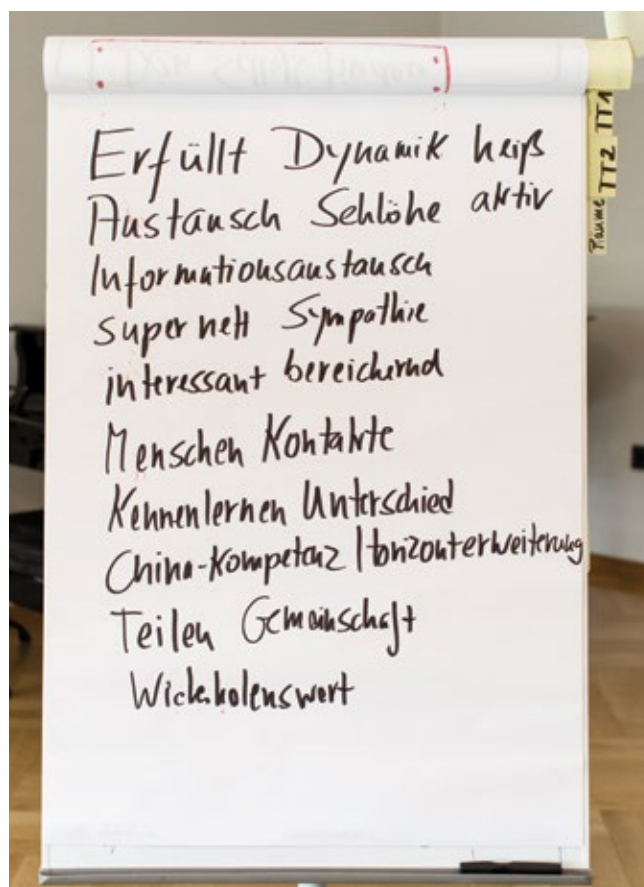 Erfüllt Dynamik heiß
Austausch Sehlöhe aktiv
Informationsaustausch
super nett Sympathie
interessant bereichernd
Menschen Kontakte
Kennenlernen Unterschied
China-Kompetenz Horizonterweiterung
Teilen Gemeinschaft
Wiederholenswert
TT1
TT2
Räume